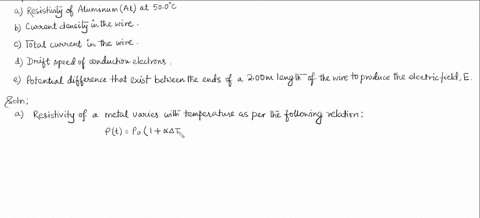 a) Resistivity of Alumunum (Al) at 50.0°C
b) Current density in the wire.
c) Total current in the wire.
d) Drift speed of conduction electrons.
e) Potential difference that exist between the ends of a 2.00m length of the wire to produce the electric field, E.
Soln:
a) Resistivity of a metal varies with temperature as per the following relation:
ρ(t) = ρ₀ (1 + αΔT